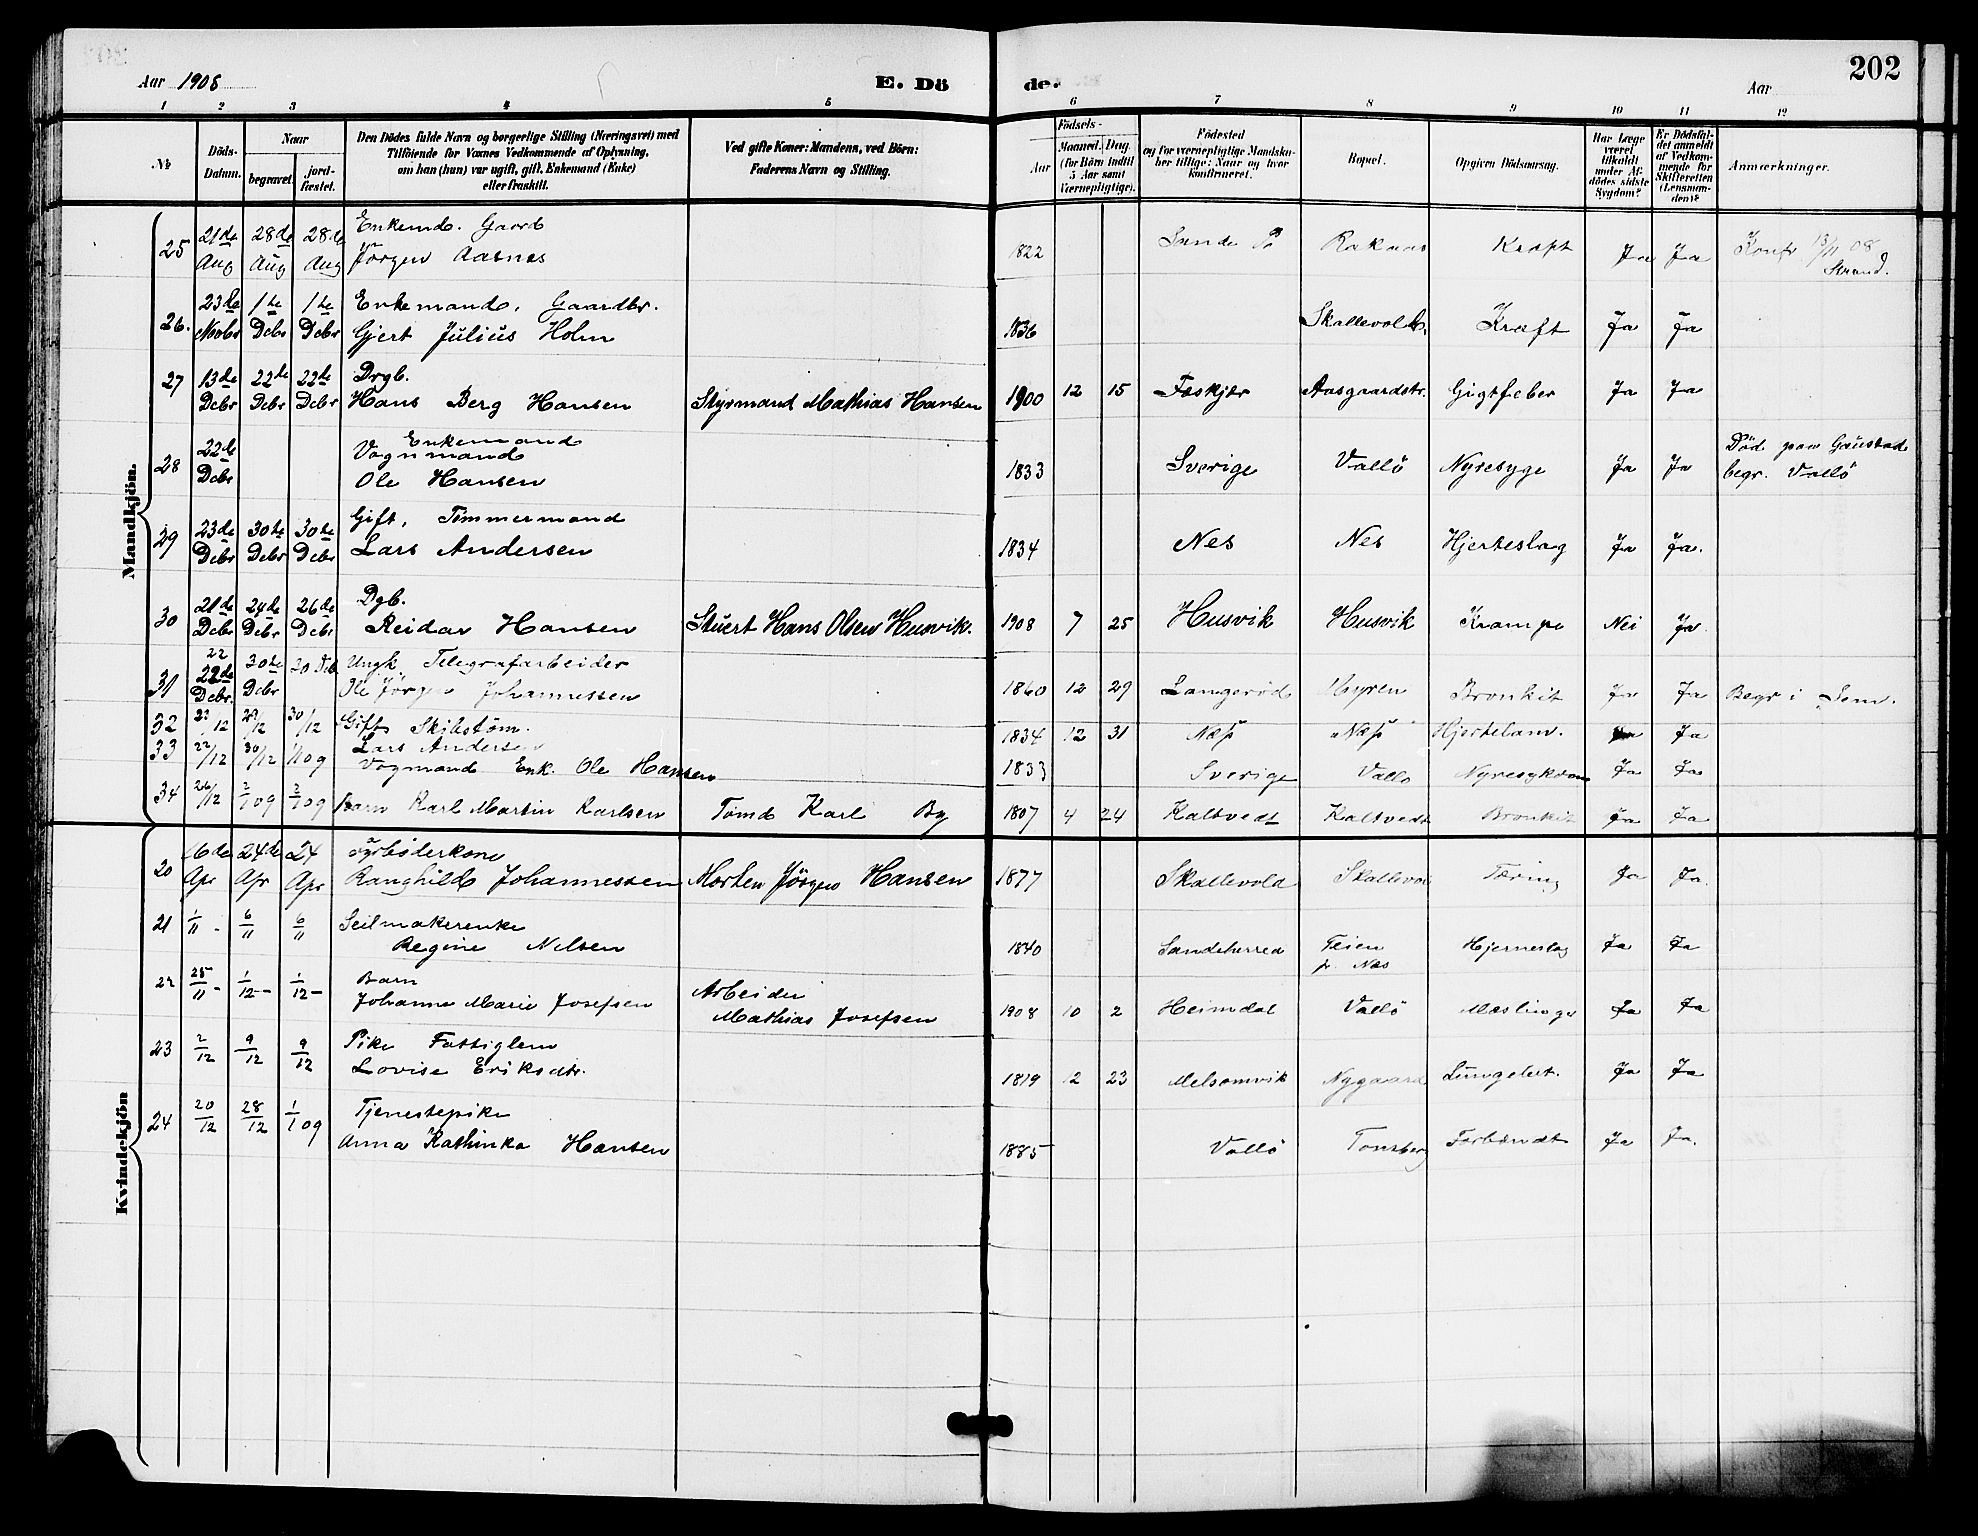 202
Aar 1908
E. Dö
de.
Aar
1 2 3 4 5 6 7 8 9 10 11 12
№
Döds-Datum.
Naar
begravet.
jord-fæstet.
Den Dödes fulde Navn og borgerlige Stilling (Næringsvei) med
Tilföiende for Voxnes Vedkommende af Oplysning,
om han (hun) var ugift, gift, Enkemand (Enke)
eller fraskilt.
Ved gifte Koner: Mandens, ved Börn:
Faderens Navn og Stilling.
Födsels-
Aar
Maaned. Dag.
(for Börn indtil
5 Aar samt
Værnepligtige).
Födested
og for værnepligtige Mandska-
ber tillige: Naar og hvor
konfirmeret.
Bopæl.
Opgiven Dödsaarsag.
Har Læge
været
tilkaldt
under Af-
dödes sidste
Sygdom?
Er Dödsfal-
det anmeldt
af Vedkom-
mende for
Skifteretten
(Lensman-
den)?
Anmærkninger.
Mandkjön.
25 21de Aug 28de Aug 28de Aug Enkemd. Gaard
Jörgen Aasnes 1822 Sande Raknes Kræft Ja Ja Konfr 13/11 08
Strand.
26. 23de Novbr 1te Debr 1te Debr Enkemand, Gaardbr.
Gjert Julius Holm 1836 Skallevold Kræft Ja Ja
27 13de Debr 22de Debr 22de Debr Drgb.
Hans Berg Hansen Styrmand Mathias Hansen 1900 12 15 Feskjær Aasgaardstr. Gigtfeber Ja Ja
28 22de Debr Enkemand
Vognmand
Ole Hansen 1833 Sverige Vallö Nyresyge Ja Ja Död paa Gaustad
begr. Vallö
29 23de Debr 30te Debr 30te Debr Gift, Tømmermand
Lars Andersen 1834 Nes Nes Hjerteslag Ja Ja.
30 21de Debr 24de Debr 26de Debr Dgb.
Reidar Hansen Stuert Hans Olsen Husvik. 1908 7 25 Husvik Husvik Krampe Nei Ja.
31 22 22de Debr. 30te Debr 30 Deb Ungk Telegrafarbeider
Ole Jörgen Johannessen 1860 12 29 Langerød Myren Bronkit Ja Ja Begr i Sem.
32 /12 29/12 30/12 Gift Skibstöm.
Lars Andersen 1834 12 31 Næss Næss Hjertelam. Ja
33 22/12 30/12 1/1 09 Vogmand Enk. Ole Hansen 1833 Sverige Vallö Nyresykdom Ja Ja
34 26/12 2/1 09 2/1 09 Barn Karl Martin Karlsen Tömd Karl By 1807 4 24 Kaltvedt Kaltvedt Bronkit Ja Ja
Kvindekjön
20 16de Apr 24de Apr 24 Apr Fyrböderkone
Ranghild Johannessen Morten Jörgen Hansen 1877 Skallevold Skallevol Tæring Ja Ja.
21 1/11 - 6/11 6/11 Seilmakerenke
Regine Nilsen 1840 Sandeherred Teien
p. Næs Hjerneslag Ja Ja
22 25/11 - 1/12 - 1/12 - Barn
Johanne Marie Josefsen Arbeider
Mathias Josefsen 1908 10 2 Heimdal Vallö Mæslinger Ja Ja
23 2/12 9/12 9/12 Pike Fattiglem
Lovise Eriksdtr. 1819 12 23 Melsomvik Nygaard Lungebet. Ja Ja
24 20/12 28/12 1/1 09 Tjenestepike
Anna Kathinka Hansen 1885 Vallö Tonsberg Forbrændt Ja Ja.